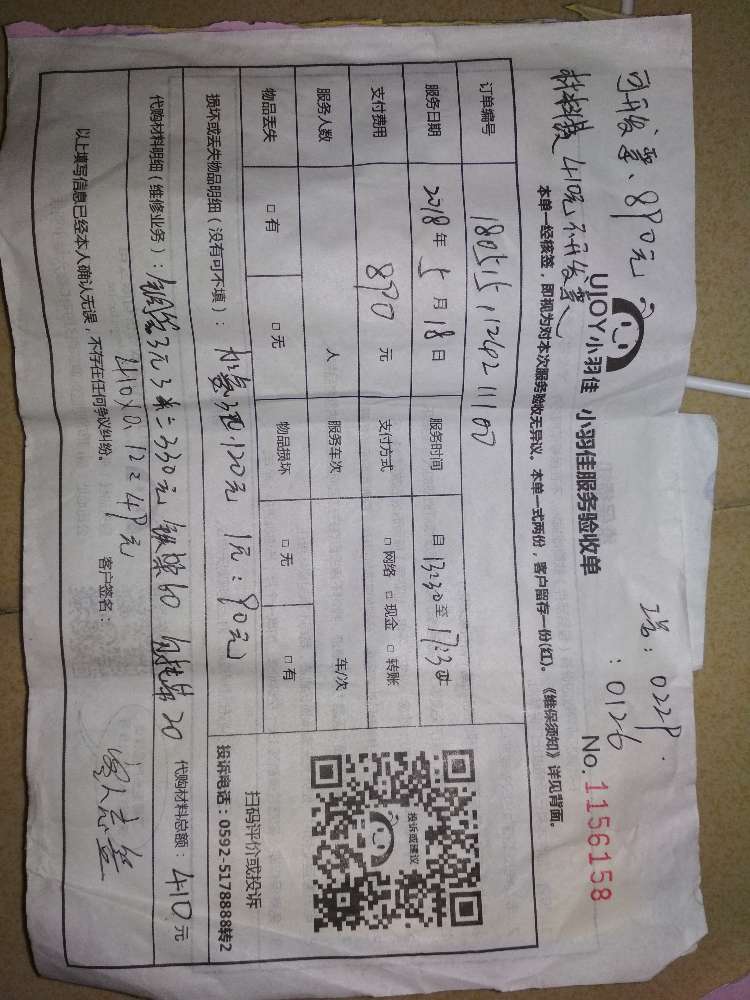 可开发票、890元
材料费410元不开发票
工号：0229
：0126
UJOY小羽佳 小羽佳服务验收单
No.1156158
本单一经核签，即视为对本次服务验收无异议。本单一式两份，客户留存一份(红)。《维保须知》详见背面。
订单编号
服务日期 2018年5月18日 服务时间 自13:30至17:30
支付费用 890元 支付方式 □网络 □现金 □转账
服务人数 人 服务车次 车/次
物品丢失 □有 □无 物品损坏 □无 □有
投诉或建议
扫码评价或投诉
投诉电话：0592-5178888转2
损坏或丢失物品明细（没有可不填）：
120元 90元
代购材料明细（维修业务）：
330元 60 20
代购材料总额：410元
410×0.12=49元
以上填写信息已经本人确认无误，不存在任何争议纠纷。
客户签名：